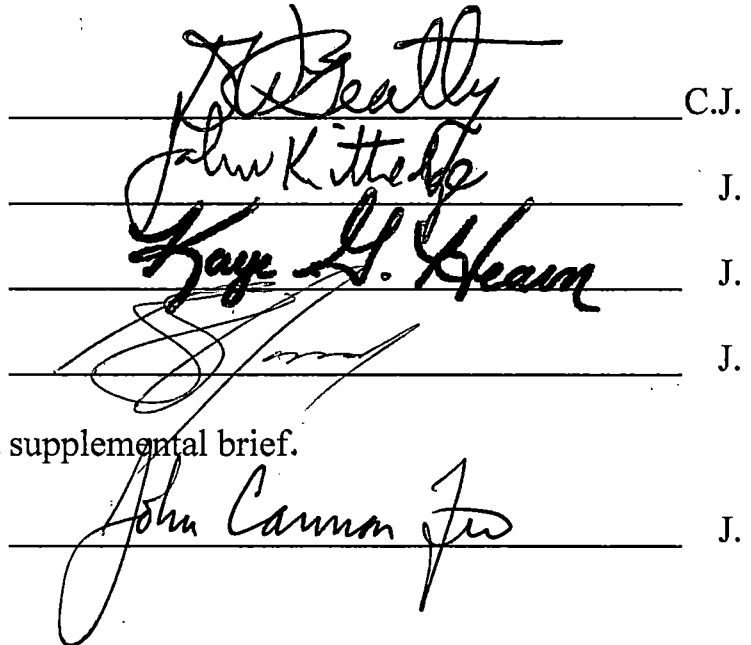 D W Beatty C.J.
John Kittredge J.
Kaye G. Hearn J.
J.
supplemental brief.
John Cannon Few J.